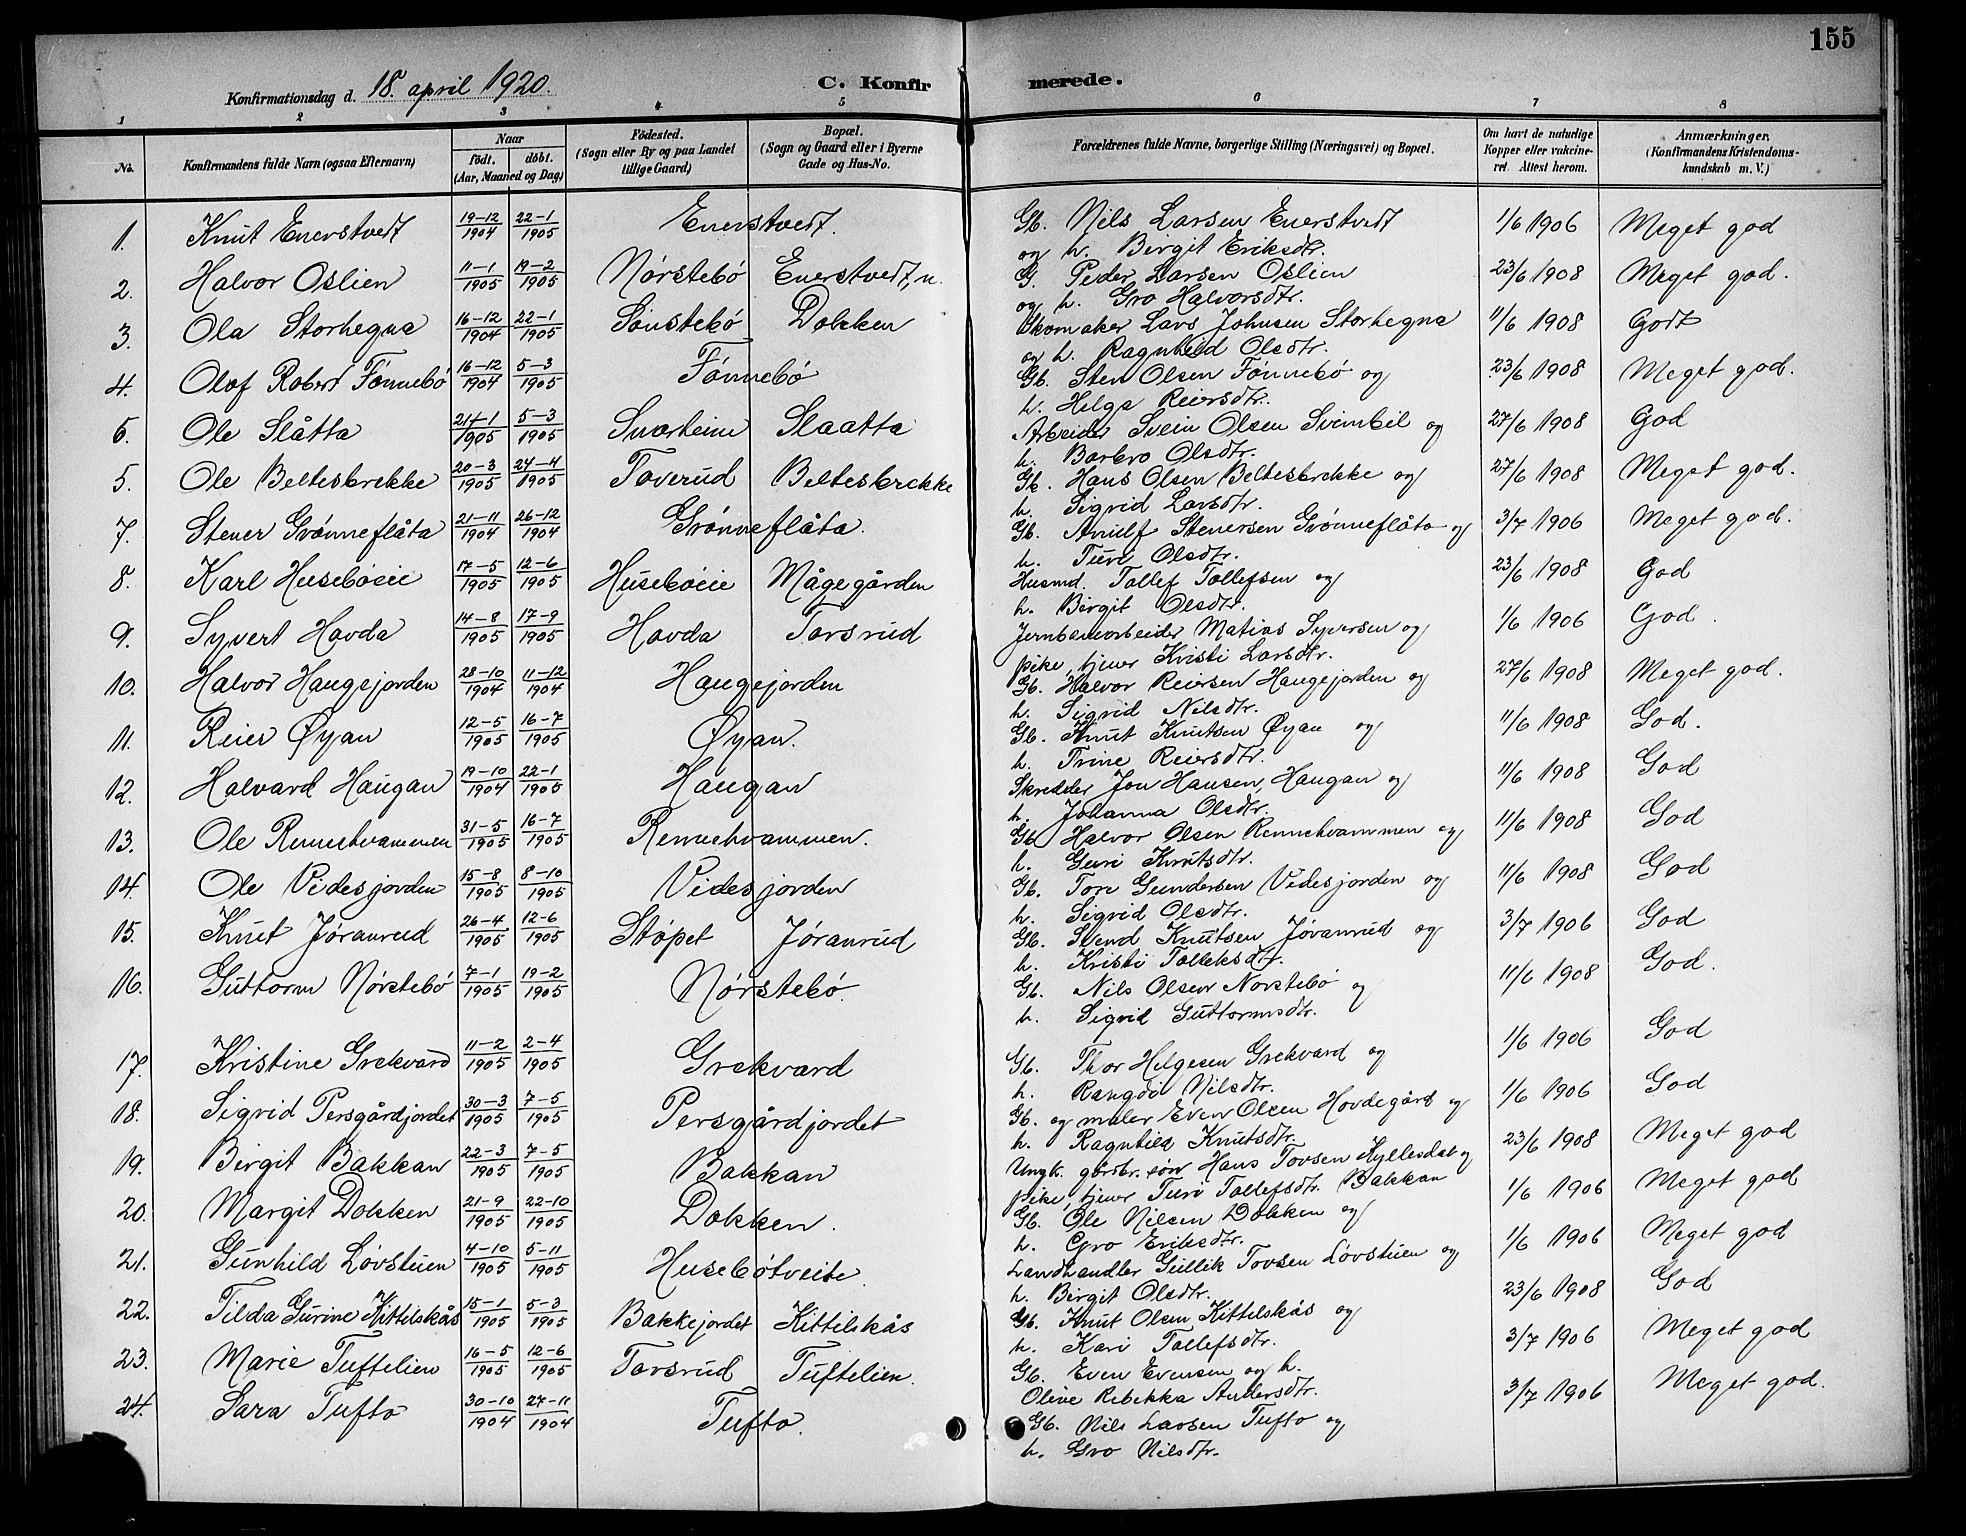 155
Konfirmationsdag d. 18. april 1920. C. Konfirmerede.
1 2 3 4 5 6 7 8
No. Konfirmandens fulde Navn (ogsaa Efternavn) Naar født. døbt. (Aar, Maaned og Dag) Fødested. (Sogn eller By og paa Landet tillige Gaard) Bopæl. (Sogn og Gaard eller i Byerne Gade og Hus-No. Forældrenes fulde Navne, borgerlige Stilling (Næringsvei) og Bopæl. Om havt de naturlige Kopper eller vakcineret. Attest herom. Anmærkninger. (Konfirmandens Kristendomskundskab m. V.)
1. Knut Enerstvedt 19-12 1904 22-1 1905 Enerstvedt. Gb. Nils Larsen Enerstvedt 1/6 1906 Meget god
og h. Birgit Eriksdtr.
2. Halvor Oslien 11-1 1905 19-2 1905 Nørstebö Enerstvedt, n. G. Peder Larsen Oslien 23/6 1908 Meget god.
og h. Gro Halvorsdtr.
3. Ola Storhegna 16-12 1904 22-1 1905 Sønstebö Dokken Skomaker Lars Johnsen Storhegna 11/6 1908 Godt
og h. Ragnhild Olsdtr.
4. Olof Robert Fønnebö 16-12 1904 5-3 1905 Fønnebö Gb. Sten Olsen Fønnebö og 23/6 1908 Meget god.
h. Helga Reiersdtr.
6. Ole Slåtta 24-1 1905 5-3 1905 Snarheim Slaatta Arbeider Svein Olsen Svimbil og 27/6 1908 God
h. Barbro Olsdtr.
5. Ole Beltesbrekke 20-3 1905 24-4 1905 Toverud Beltesbrekke Gb. Hans Olsen Beltesbrekke og 27/6 1908 Meget god.
h. Sigrid Larsdtr.
7. Stener Grønneflåta 21-11 1904 26-12 1904 Grønneflåta. Gb. Anulf Stenersen Grønneflåta og 3/7 1906 Meget god.
h. Turi Olsdtr.
8. Karl Husebøeie 17-5 1905 12-6 1905 Husebøeie Mågegården Husmd. Tollef Tollefsen og 23/6 1908 God
h. Birgit Olsdtr.
9. Syvert Hovda 14-8 1905 17-9 1905 Hovda Torsrud Jernbanearbeider Matias Syversen og 1/6 1906 God.
pike, tjener Kristi Larsdtr.
10. Halvor Haugejorden 28-10 1904 11-12 1904 Haugejorden Gb. Halvor Reiersen Haugejorden og 27/6 1908 Meget god.
h. Sigrid Nilsdtr.
11. Reier Øyan 12-5 1905 16-7 1905 Øyan. Gb. Knut Knutsen Øyan og 11/6 1908 God.
h. Trine Reiersdtr.
12. Halvard Haugan 19-10 1904 22-1 1905 Haugan Skredder Jon Hansen, Haugan og 11/6 1908 God
h. Johanna Olsdtr.
13. Ole Rennehvammen 31-5 1905 16-7 1905 Rennehvammen. Gb Halvor Olsen Rennehvammen og 11/6 1908 God
h. Guri Knutsdtr.
14. Ole Videsjorden 15-8 1905 8-10 1905 Videsjorden Gb. Tore Gundersen Videsjorden og 11/6 1908 God
h. Sigrid Olsdtr.
15. Knut Jøranrud 26-4 1905 12-6 1905 Støpet Jøranrud Gb. Svend Knutsen Jøranrud og 3/7 1906 God
h. Kristi Tolleksdtr.
16. Guttorm Nørstebö 7-1 1905 19-2 1905 Nørstebö. Gb. Nils Olsen Norstebö og 11/6 1908 God.
h. Sigrid Guttormsdtr.
17. Kristine Grekvard 11-2 1905 2-4 1905 Grekvard Gb. Thor Helgesen Grekvard og 1/6 1906 God
h. Rangdi Nilsdtr.
18. Sigrid Persgårdjordet 30-3 1905 7-5 1905 Persgårdjordet Gb. og maler Even Olsen Hovdegård og 1/6 1906 God
h. Ragnhild Knutsdtr.
19. Birgit Bakkan 22-3 1905 7-5 1905 Bakkan Ungk. gårdbr. søn Hans Tovsen Kyllesdal og 23/6 1908 Meget god
pike, tjener Turi Tollefsdtr. Bakkan
20. Margit Dokken 21-9 1905 22-10 1905 Dokken. Gb. Ole Nilsen Dokken og 1/6 1906 Meget god
h. Gro Eriksdtr.
21. Gunhild Løvstuen 4-10 1905 5-11 1905 Husebøtveite. Landhandler Gullik Tovsen Lovstuen og 1/6 1906 Meget god
h. Birgit Olsdtr.
22. Tilda Gurine Kittilskås 15-1 1905 5-3 1905 Bakkejordet Kittilskås Gb. Knut Olsen Kittilskås og 23/6 1908 God
h. Kari Tollefsdtr.
23. Marie Tuftelien 16-5 1905 12-6 1905 Torsrud Tuftelien. Gb. Even Evensen og h. 3/7 1906 Meget god
Oline Rebekka Andersdtr.
24. Sara Tufto 30-10 1904 27-11 1904 Tufto. Gb. Nils Larsen Tufto og 3/7 1906 Meget god.
h. Gro Nilsdtr.